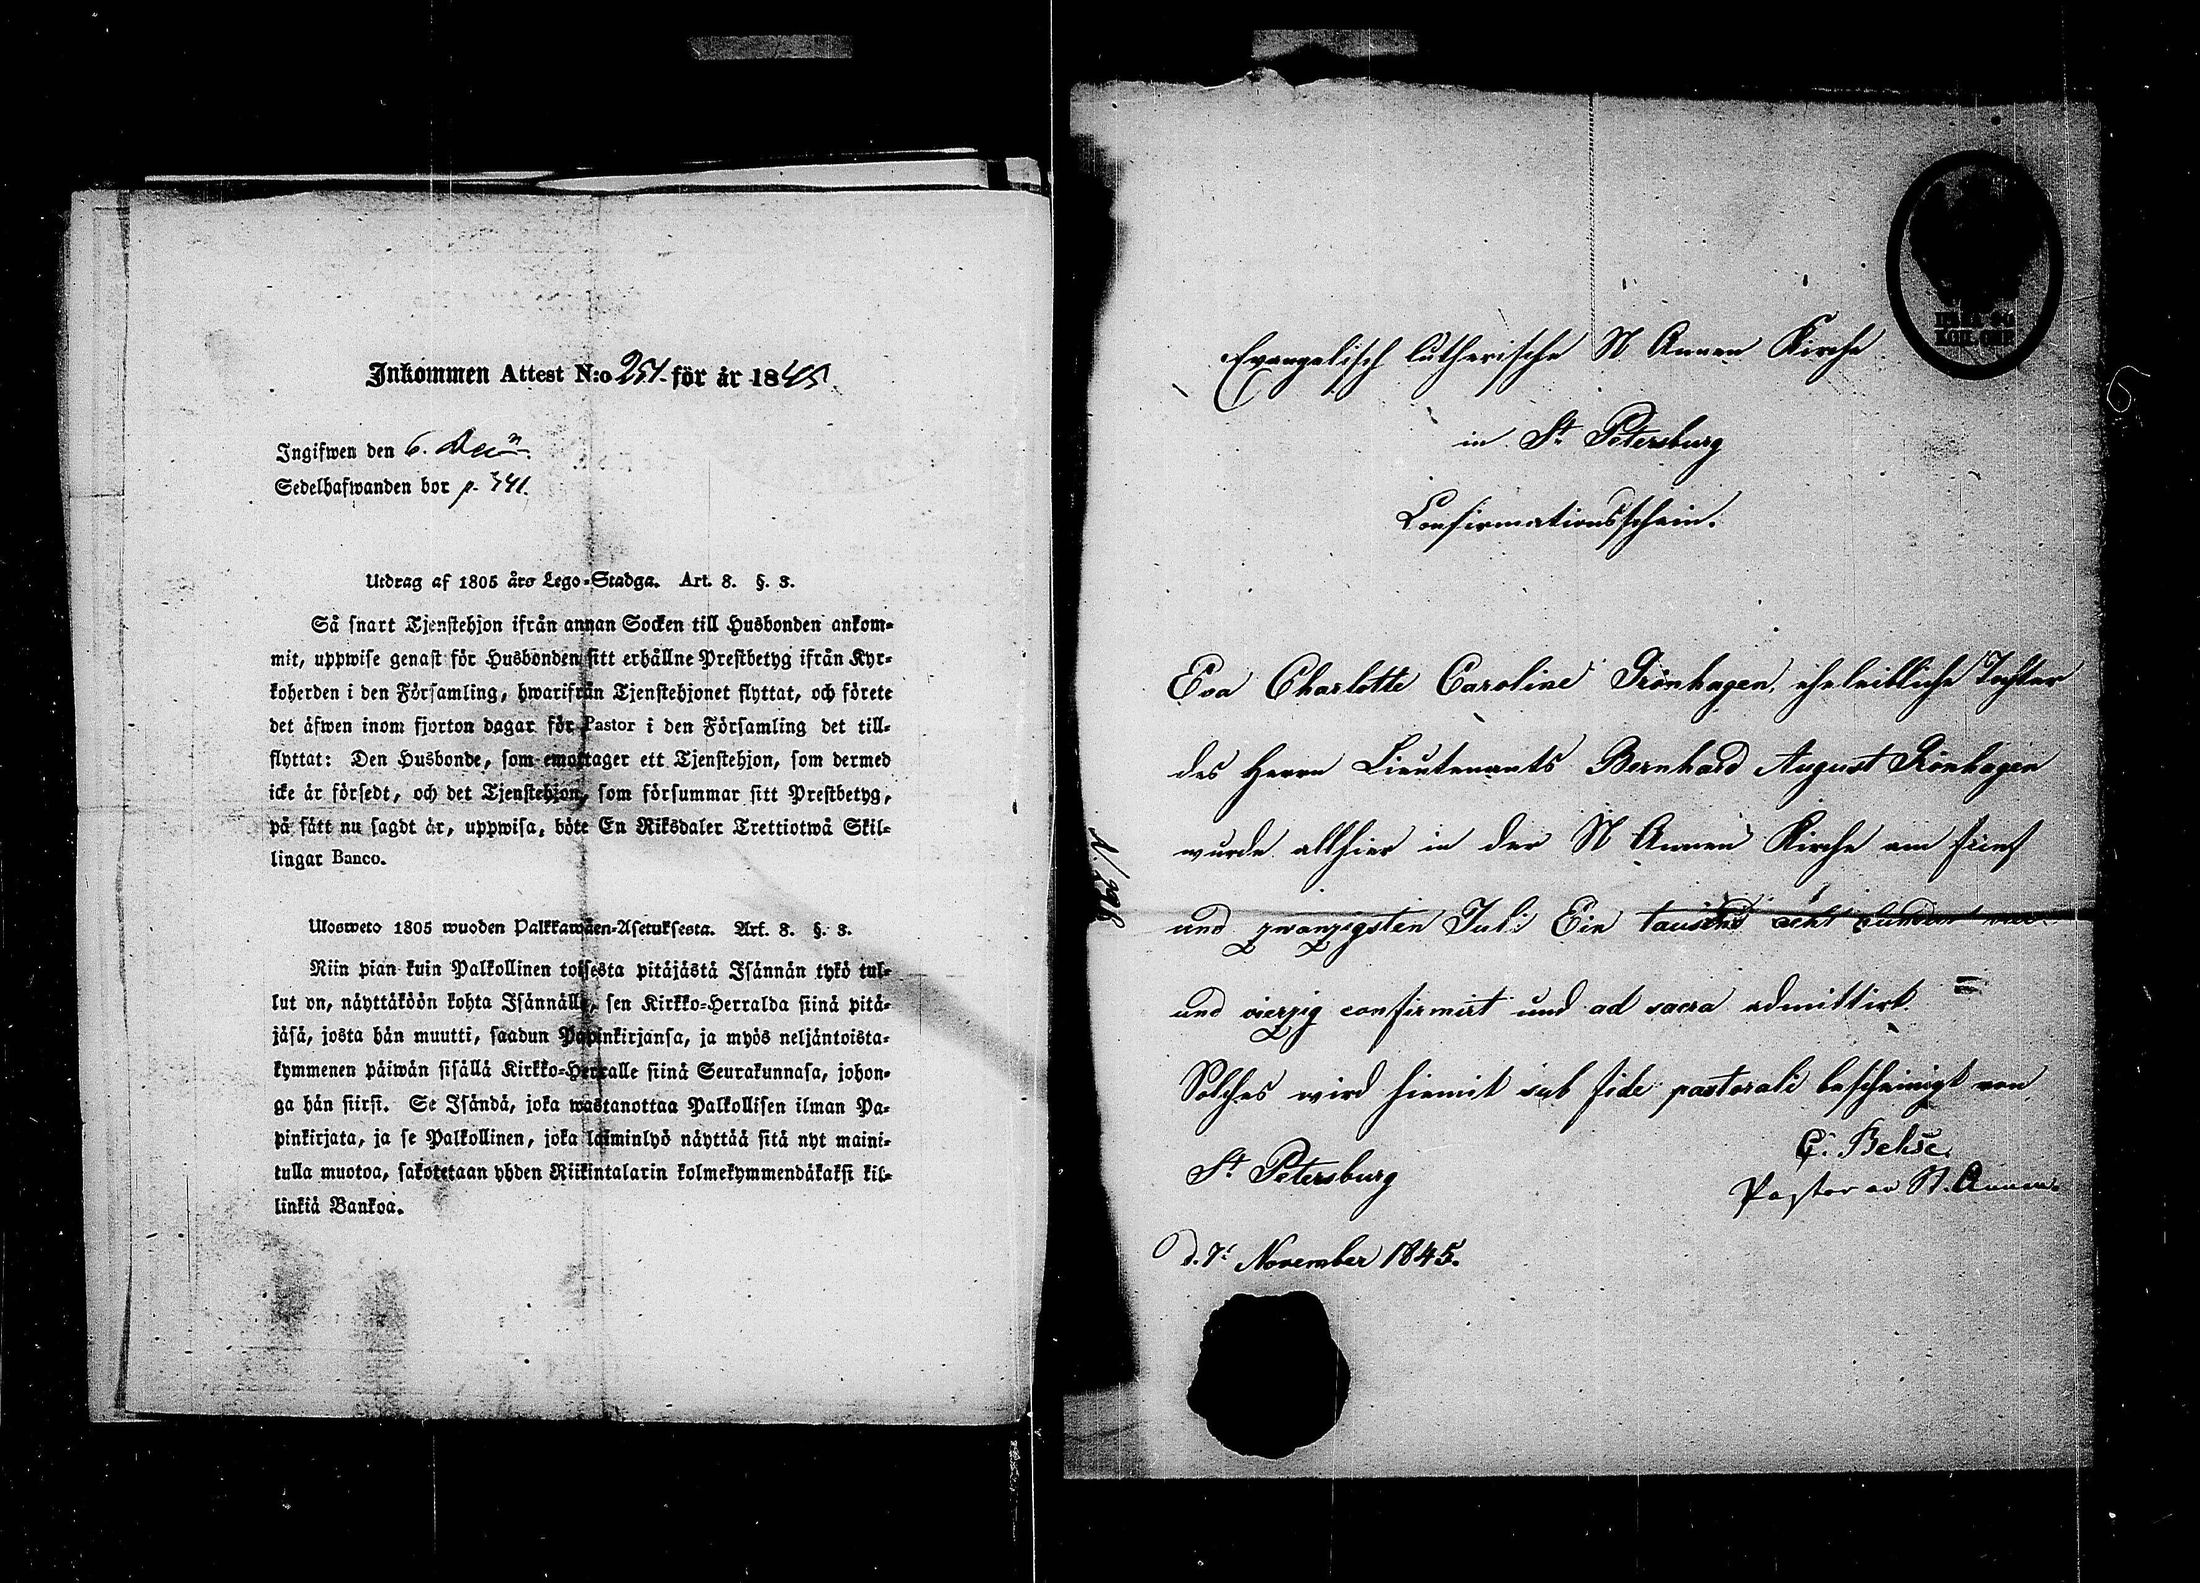 Inkommen Attest N:o 251. för år 1845.
Ingifwen den 6. Decn.
Sedelhafwanden bor p. 341.
Utdrag af 1805 års Lego-Stadga. Art. 8. §. 3.
Så snart Tjenstehjon ifrån annan Socken till Husbonden ankom-
mit, uppwise genast för Husbonden sitt erhållne Prestbetyg ifrån Kyr-
koherden i den Församling, hwarifrån Tjenstehjonet flyttat, och förete
det äfwen inom fjorton dagar för Pastor i den Församling det till-
flyttat: Den Husbonde, som emottager ett Tjenstehjon, som dermed
icke är försedt, och det Tjenstehjon, som försummar sitt Prestbetyg,
på sätt nu sagdt är, uppwisa, böte En Riksdaler Trettiotwå Skil-
lingar Banco.
Ulosweto 1805 wuoden Palkkawäen-Asetuksesta. Art. 8. §. 3.
Niin pian kuin Palkollinen toisesta pitäjästä Isännän tykö tul-
lut on, näyttäköön kohta Isännälle, sen Kirkko-Herralda siinä pitä-
jäsä, josta hän muutti, saadun Papinkirjansa, ja myös neljäntoista-
kymmenen päiwän sisällä Kirkko-Herralle siinä Seurakunnasa, johon-
ga hän siirsi. Se Isändä, joka wastanottaa Palkollisen ilman Pa-
pinkirjata, ja se Palkollinen, joka laiminlyö näyttää sitä nyt maini-
tulla muotoa, sakotetaan yhden Riikintalarin kolmekymmendäkaksi kil-
linkiä Bankoa.
Evangelisch lutherische St Annen Kirche
in St. Petersburg
Confirmationsschein.
Eva Charlotte Caroline Grönhagen, eheleibliche Tochter
des Herrn Lieutenants Bernhard August Grönhagen
wurde allhier in der St Annen Kirche am fünf
und zwanzigsten Juli Ein tausend acht hundert vier
und vierzig confirmirt und ad sacra admittirt. =
Solches wird hiemit sub fide pastorali bescheinigt von
C. Behse.
St. Petersburg
Pastor an St. Annen.
d. 7. November 1845.